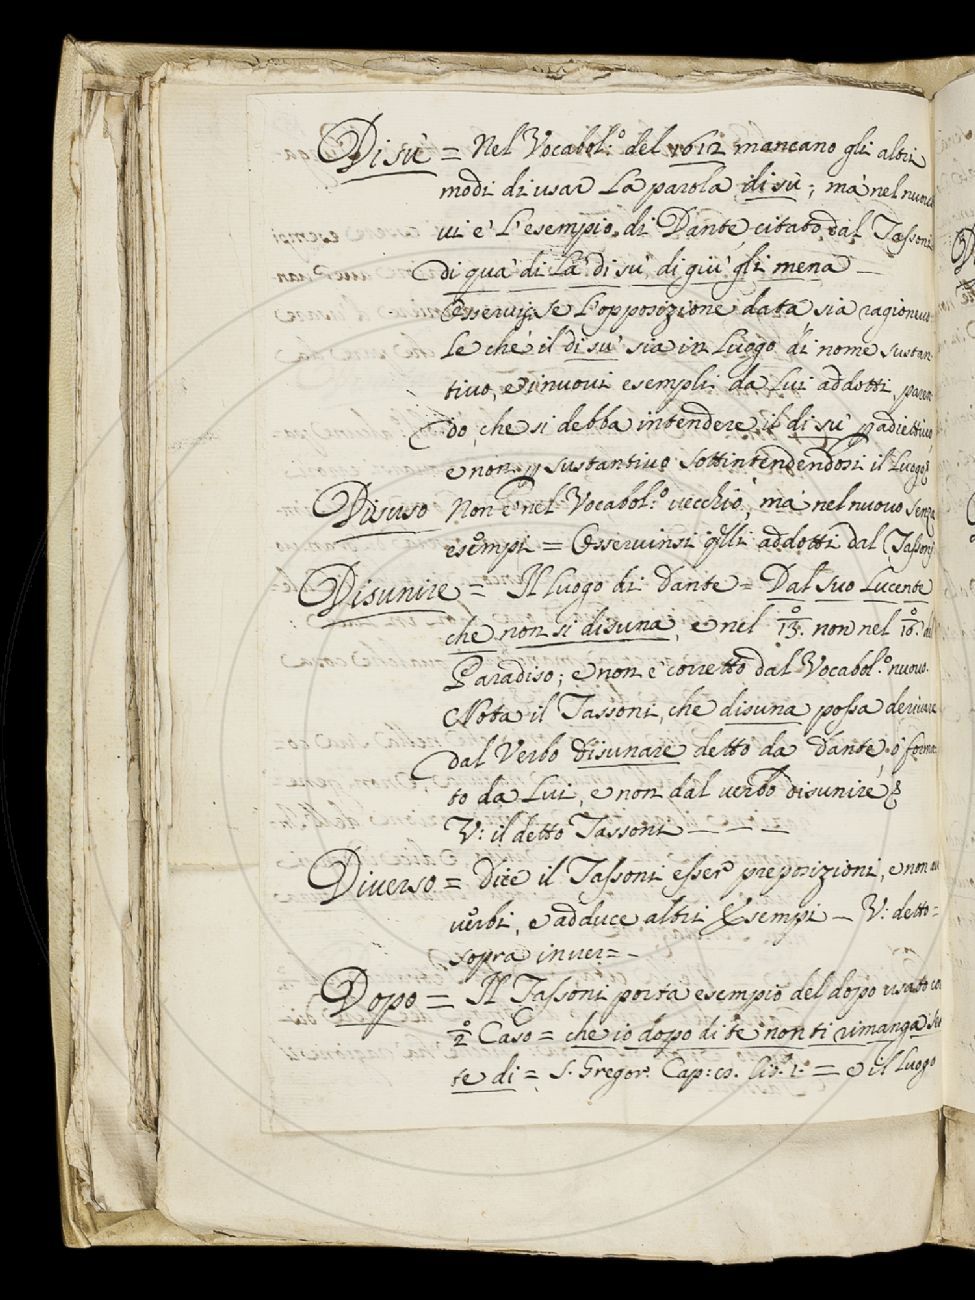 Disù = Nel Vocabol.º del 1612 mancano gli altri
modi di usar la parola di sù; mà nel nuovo
vi è l'esempio di Dante citato dal Tassoni
di quà di là di sù di giù gli mena —
Osservisi se l'opposizione data sia ragionevo
le che il di sù sia in luogo di nome sustan
tivo, e i nuovi esempli da lui addotti, paren
do, che si debba intendere il di sù p adiettivo,
e non p sustantivo sottintendendosi il luogo
Disuso Non è nel Vocabol.º vecchio, mà nel nuovo senza
esempi = Osservinsi gli addotti dal Tassoni
Disunire = Il luogo di Dante = Dal suo lucente
che non si disuna, e nel 13.º non nel 10.º del
Paradiso; e non è corretto dal Vocabol.º nuovo.
Nota il Tassoni, che disuna possa derivare
dal Verbo disunare detto da Dante, ò forma
to da lui, e non dal verbo disunire
V: il detto Tassoni — — —
Diverso = Dice il Tassoni esser preposizioni, e non av
verbi, e adduce altri Esempi — V: detto =
sopra in ver = -
Dopo = Il Tassoni porta esempio del dopo usato co
2º Caso = che io dopo di te non ti rimanga
te di = S. Gregor. Cap: Lib. 1. = e il luogo